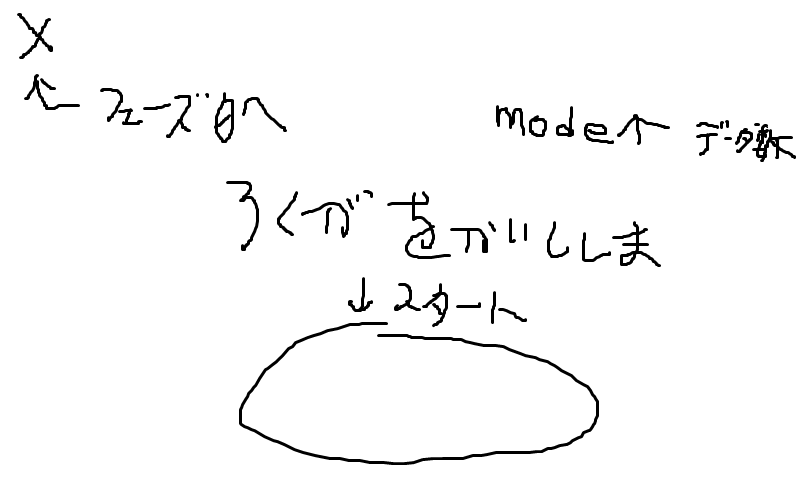 X
フェーズ9へ
mode↑ データ
ろくがをがいししま
↓スタート